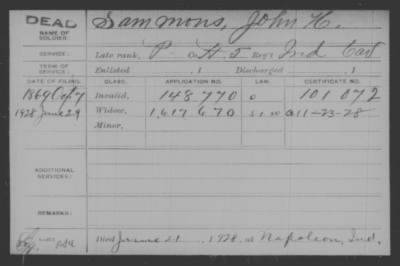 DEAD
NAME OF SOLDIER:
Sammons, John H.
SERVICE:
Late rank, P Co. H, 7 Reg't Ind Cav
TERM OF SERVICE:
Enlisted , 1 Discharged , 1
DATE OF FILING. CLASS. APPLICATION NO. LAW. CERTIFICATE NO.
1869 Invalid, 148 770 0 101 072
1928 June 29 Widow, 1,617,670 11-23-28
Minor,
ADDITIONAL SERVICES:
REMARKS:
Died June 21, 1928, at Napoleon, Ind.